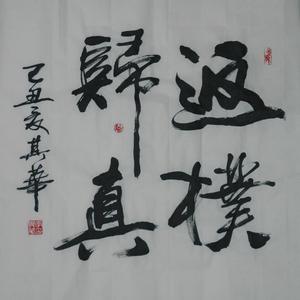 返樸
歸真
己丑夏其華